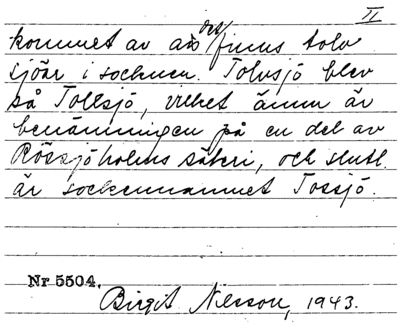 II
kommet av att det finns tolv
sjöar i socknen. Tolvsjö blev
så Tollsjö, vilket ännu är
benämningen på en del av
Rössjöholms säteri, och slutl.
är sockennamnet Tossjö.
Nr 5504.
Birgit Nilsson, 1943.